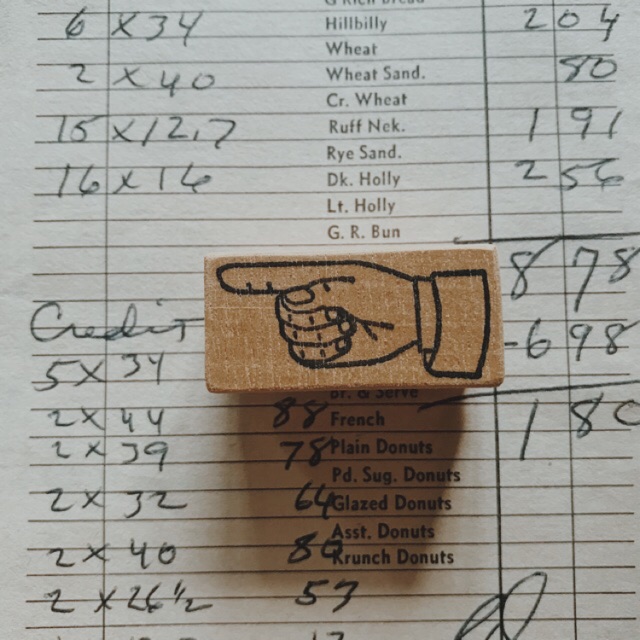 6 x 34 Hillbilly 2 04
Wheat
2 x 40 Wheat Sand. 80
Cr. Wheat
15 x 12.7 Ruff Nek. 1 91
Rye Sand.
16 x 16 Dk. Holly 2 56
Lt. Holly
G. R. Bun
8 78
Credit -6 98
5 x 34 Br. & Serve
2 x 44 88 French 1 80
2 x 39 78 Plain Donuts
Pd. Sug. Donuts
2 x 32 64 Glazed Donuts
Asst. Donuts
2 x 40 80 Krunch Donuts
2 x 26½ 53